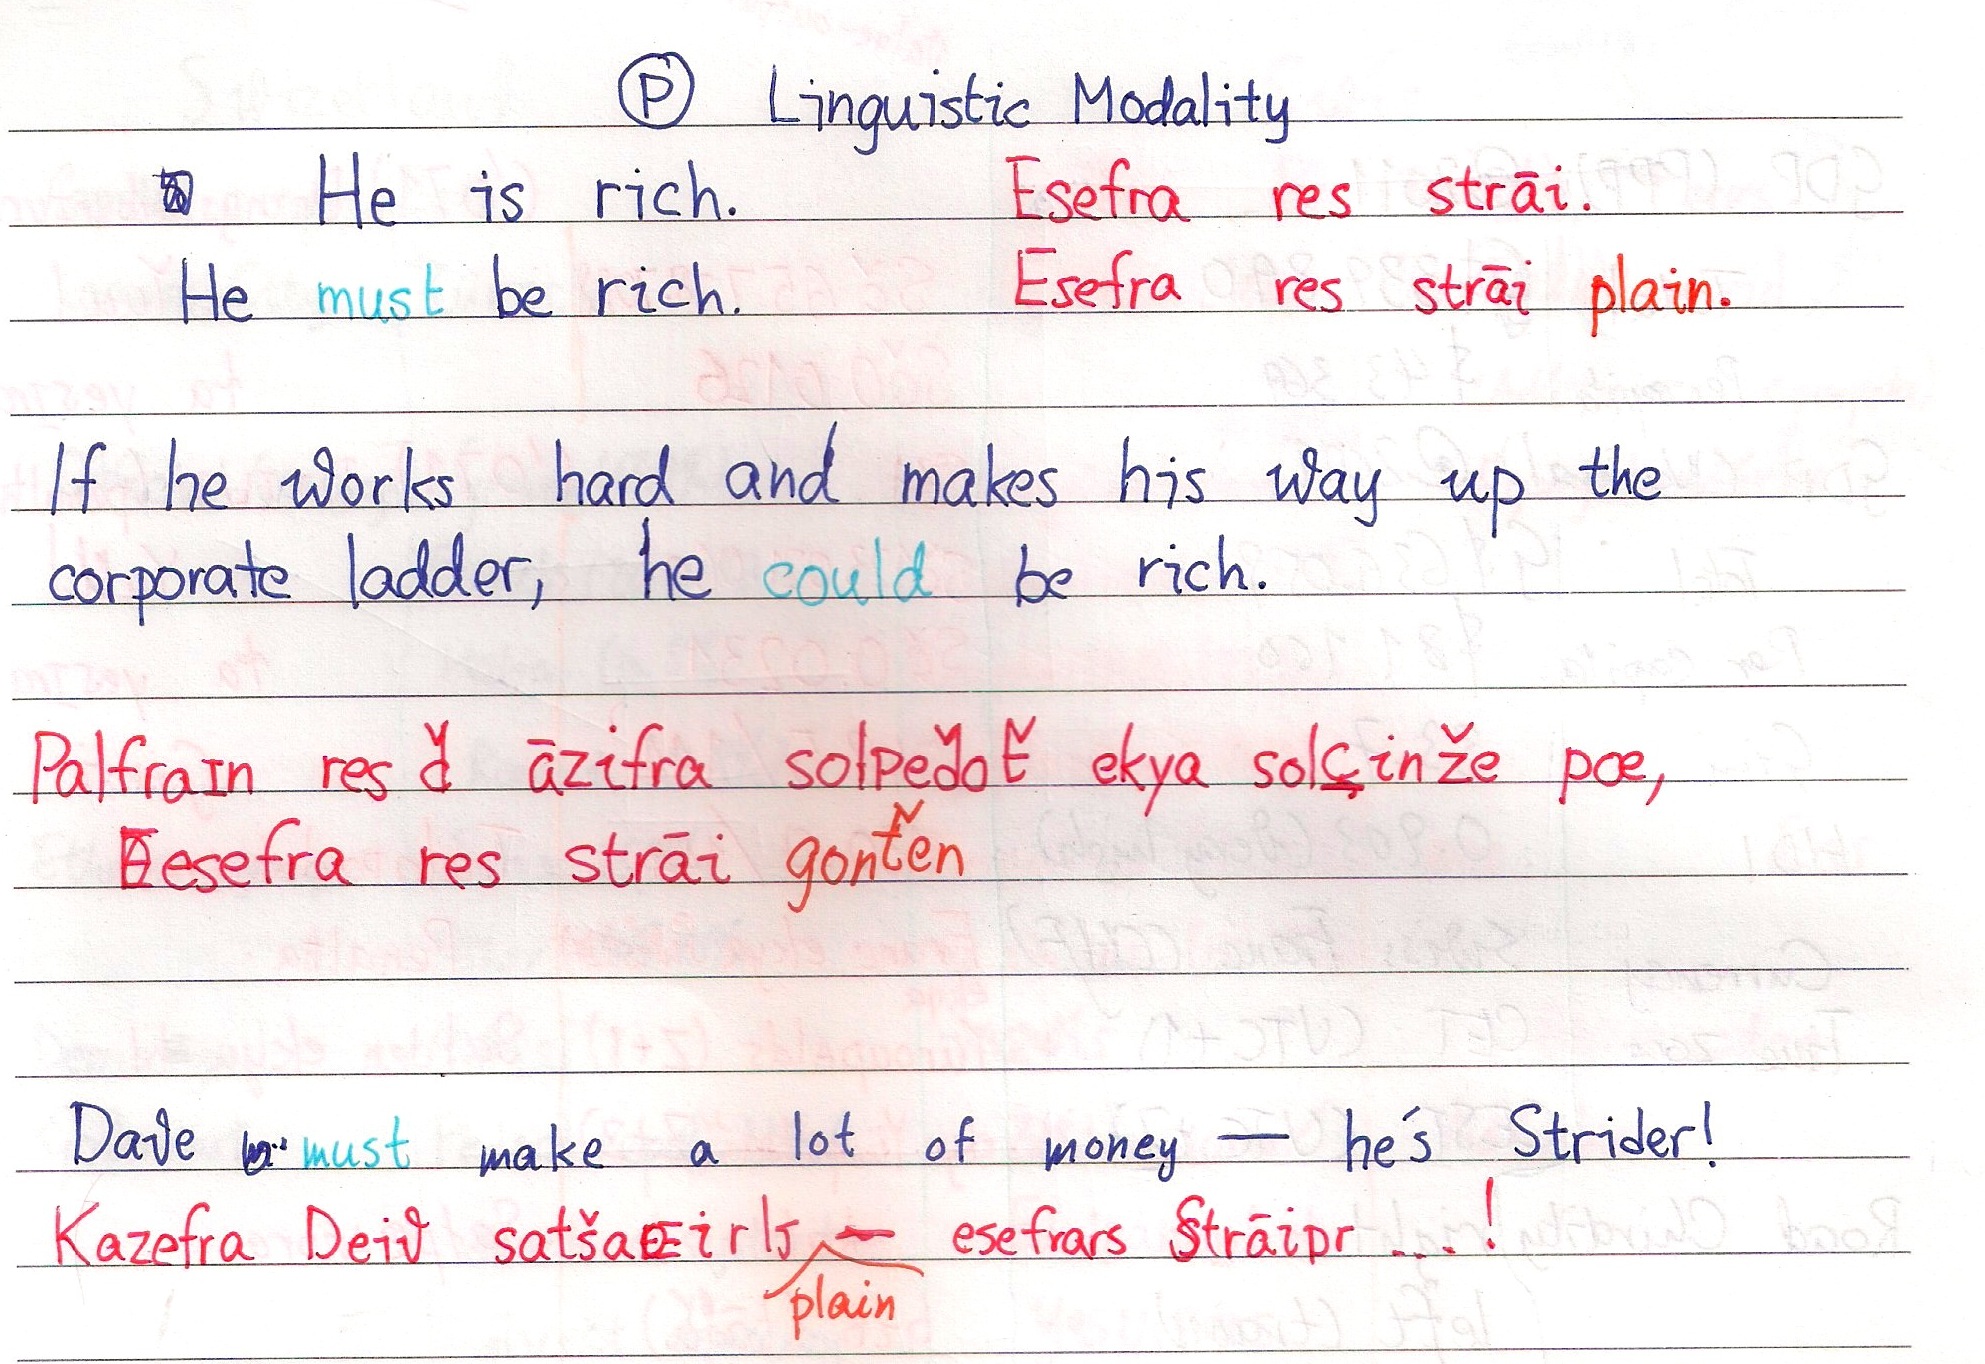 Ⓟ Linguistic Modality
He is rich. Esefra res strāi.
He must be rich. Esefra res strāi plain.
If he works hard and makes his way up the
corporate ladder, he could be rich.
Palfraın res ď āzifra solpeďoť ekya solçinže pœ,
esefra res strāi gonťen
Dave must make a lot of money — he's Strider!
Kazefra Deiv — esefrars Strāipr ....!
plain